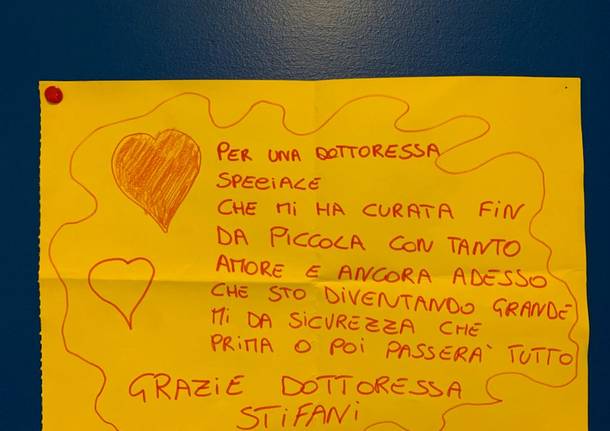 PER UNA DOTTORESSA
SPECIALE
CHE MI HA CURATA FIN
DA PICCOLA CON TANTO
AMORE E ANCORA ADESSO
CHE STO DIVENTANDO GRANDE
MI DA SICUREZZA CHE
PRIMA O POI PASSERA' TUTTO
GRAZIE DOTTORESSA
STIFANI